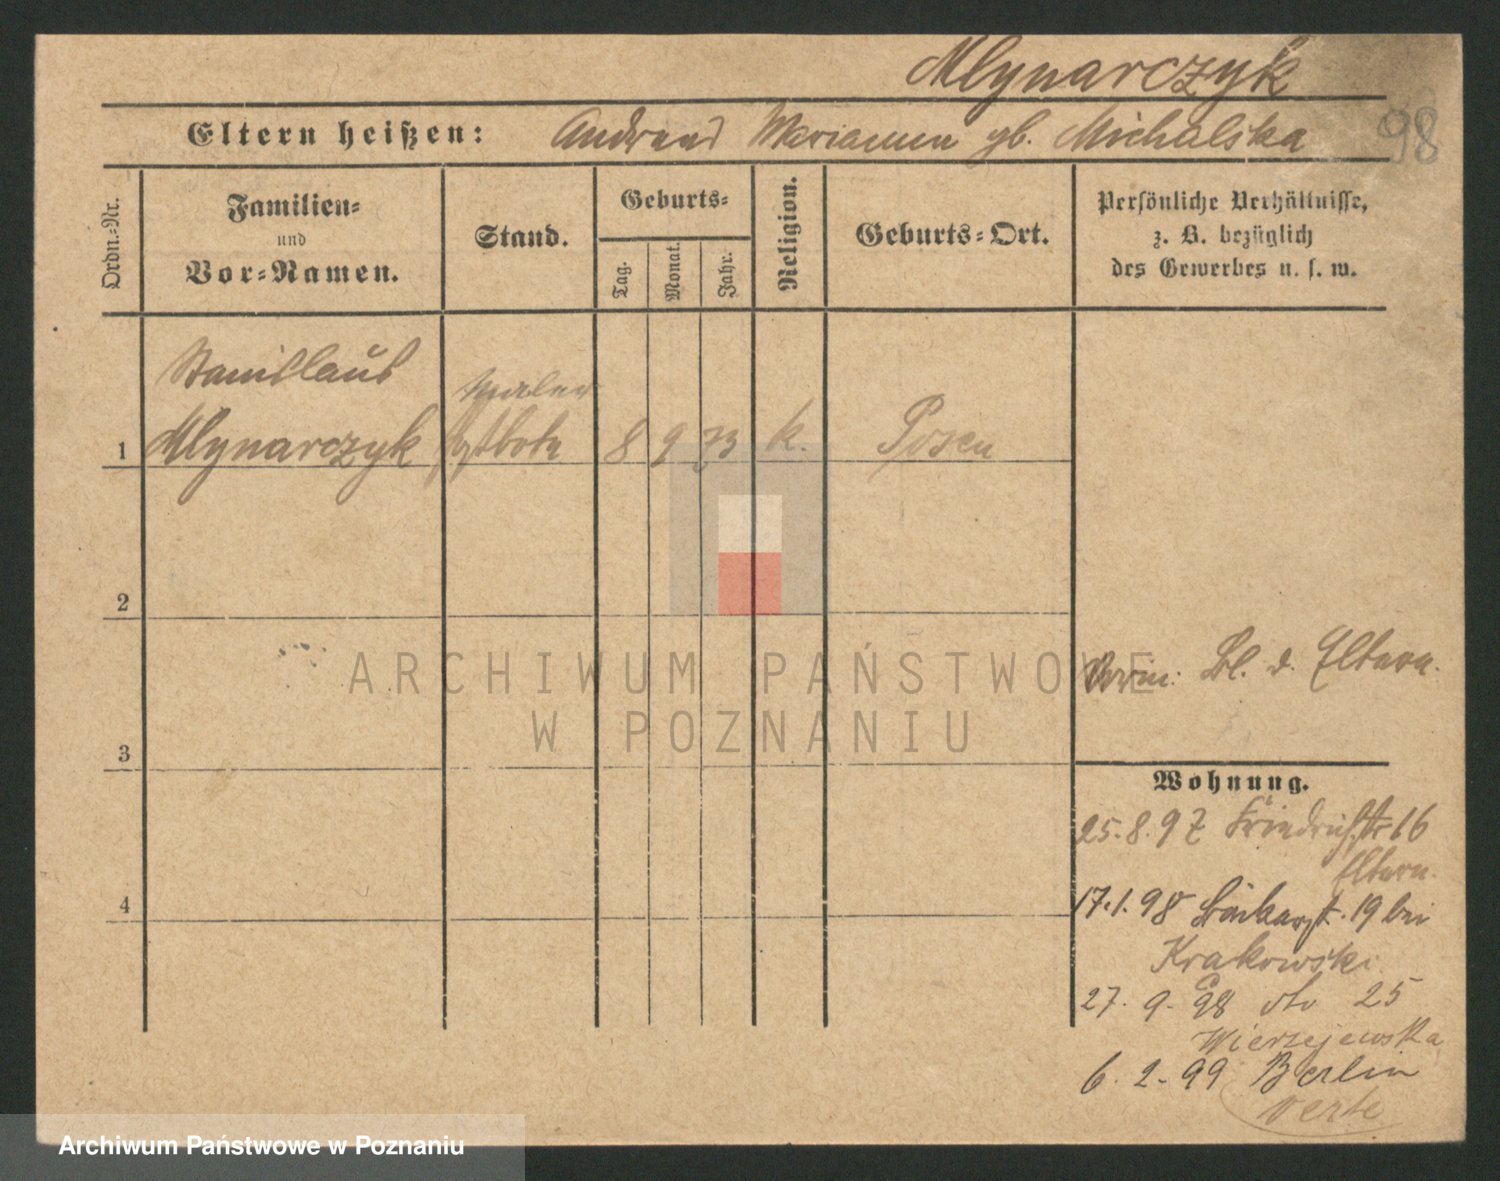 Mlynarczyk
98
Eltern heißen: Andreas Marianna gb. Michalska
Ordn.-Nr.
Familien-
und
Vor-Namen.
Stand.
Geburts-
Tag.
Monat.
Jahr.
Religion.
Geburts-Ort.
Persönliche Verhältnisse,
z. B. bezüglich
des Gewerbes u. s. w.
Stanislaus
Maler
1 Mlynarczyk 8 9 73 k. Posen
2
Bl. d. Eltern.
3
Wohnung.
25.8.97 Friedrichstr 16
Eltern.
4
17.1.98 19 bei
Krakowski
27. 9. 98 dto 25
Wierzejewska
6. 2. 99 Berlin
verte
ARCHIWUM PAŃSTWOWE
W POZNANIU
Archiwum Państwowe w Poznaniu